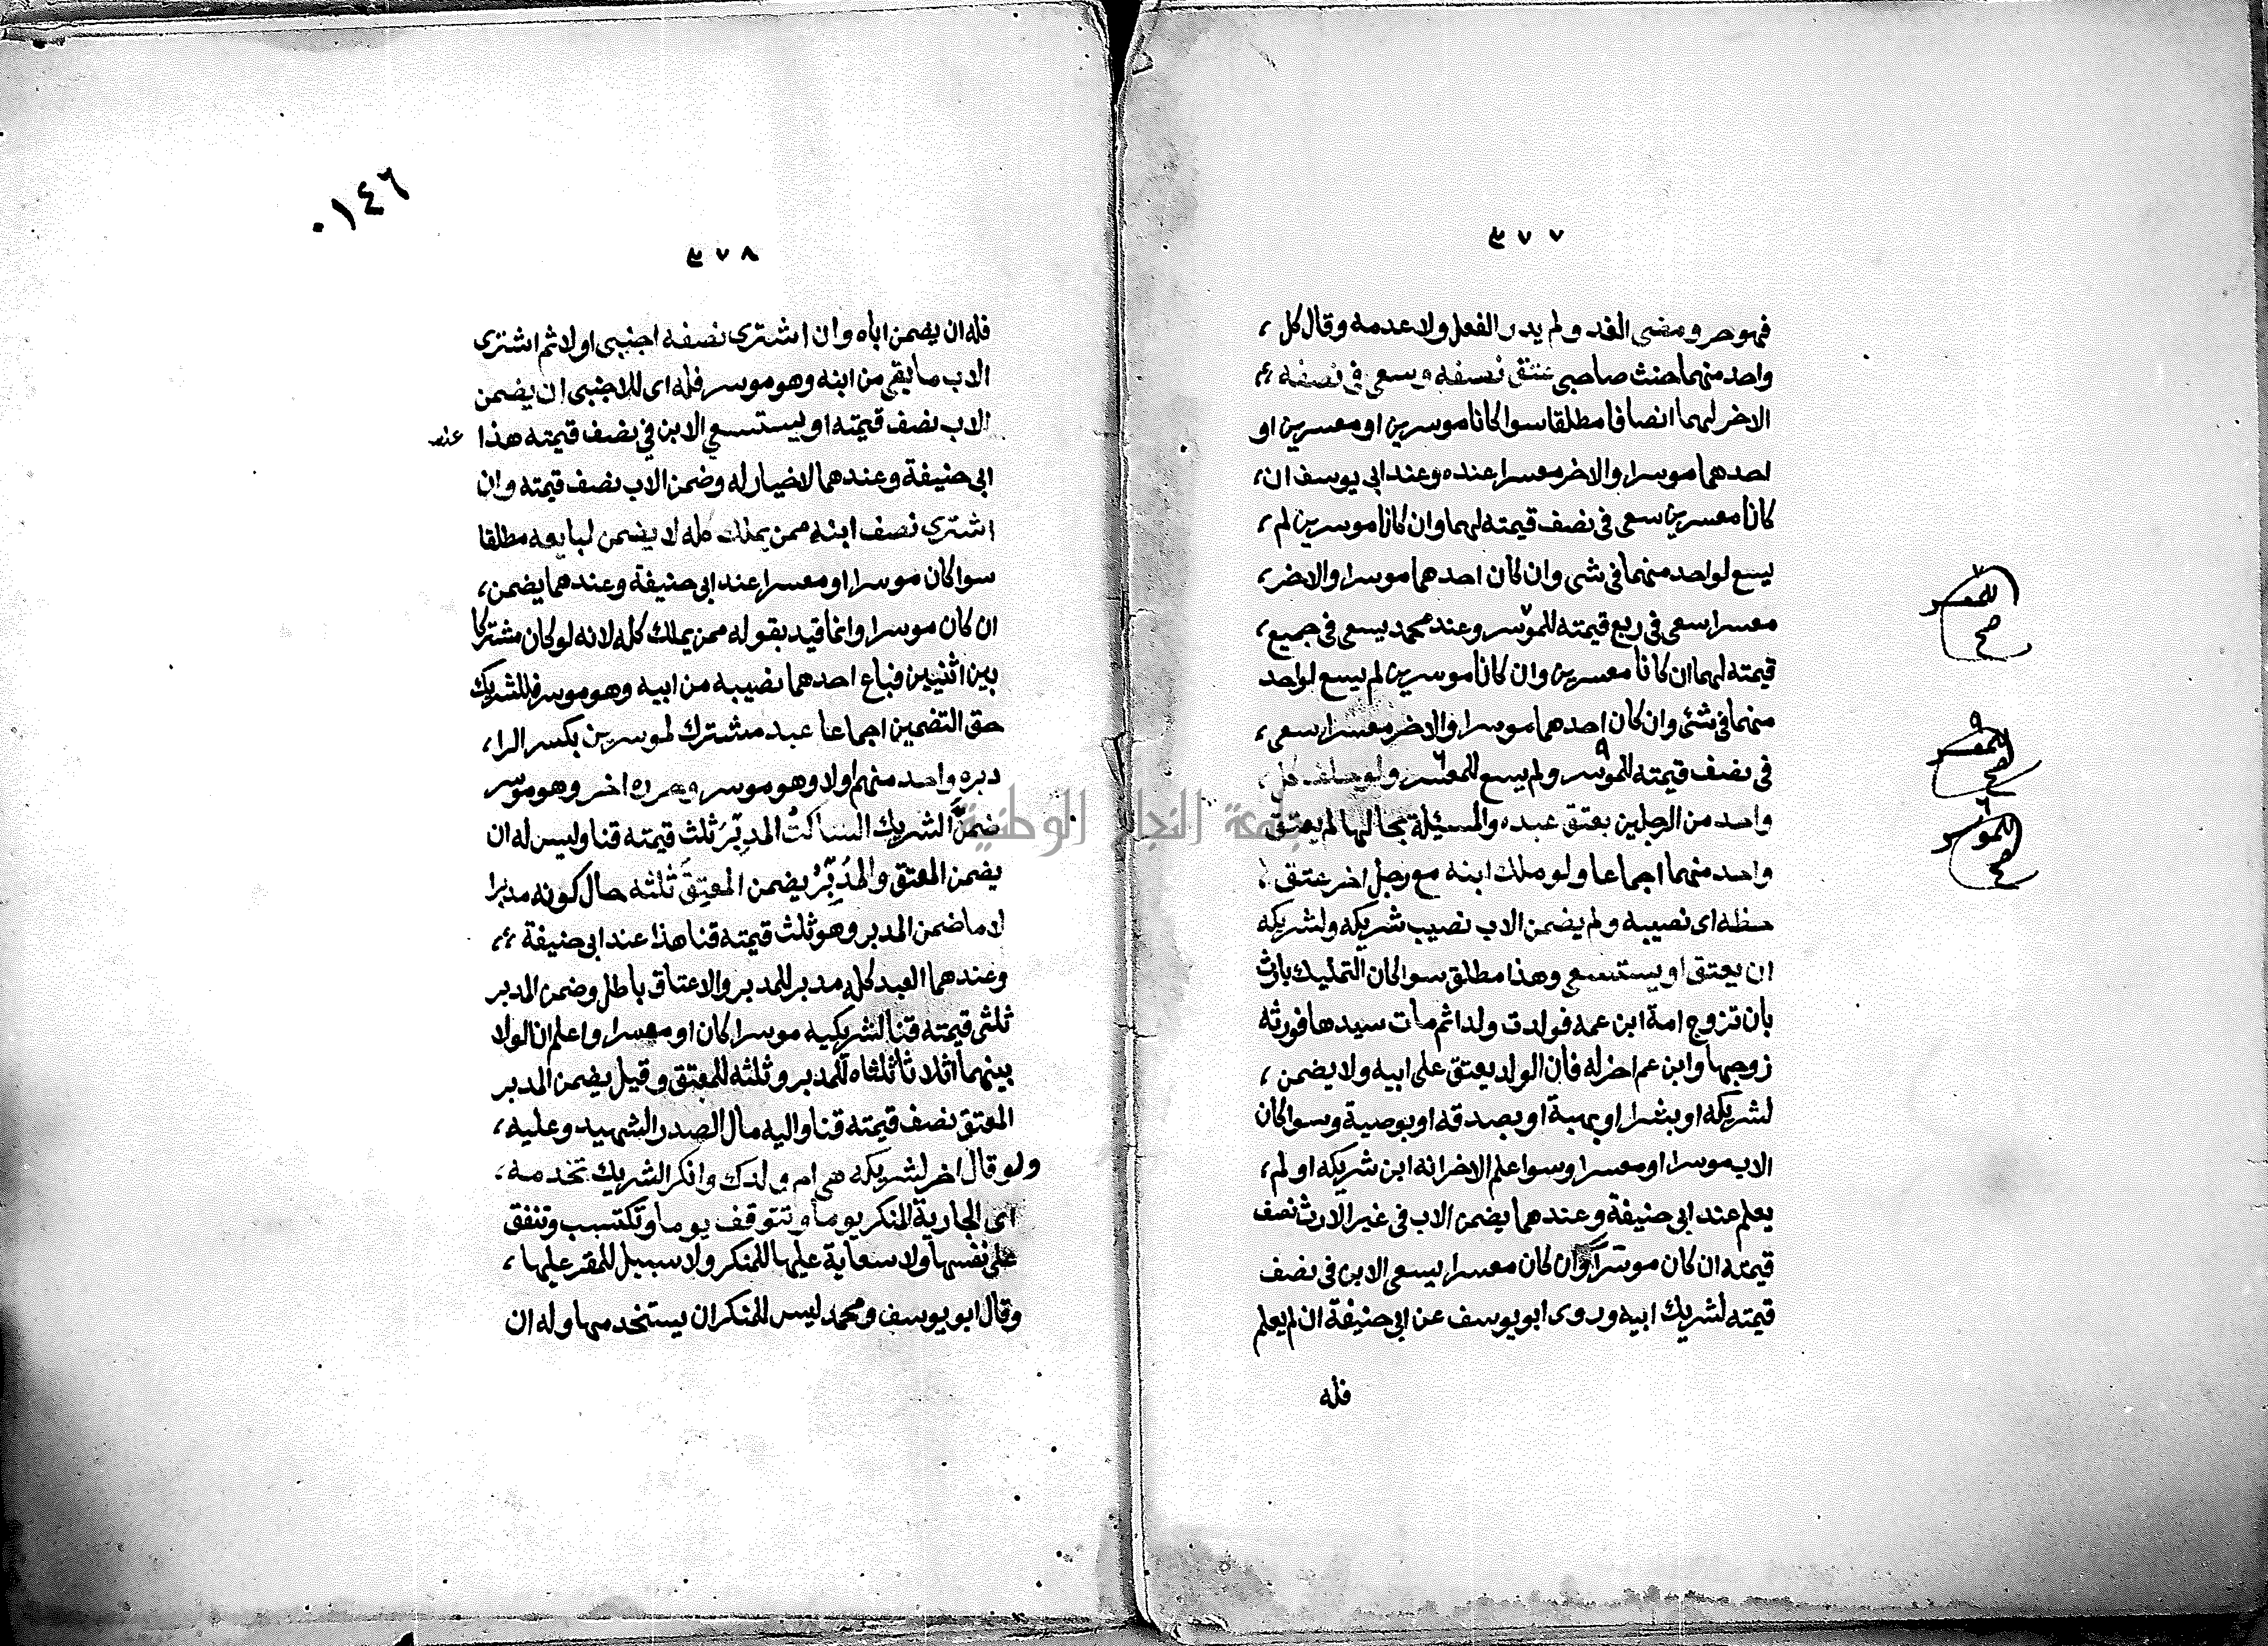 ٣٧٧
فهو حر ومضى الغد ولم يدر الفعل ولا عدمه وقال كل،
واحد منهما حنث صاحبى عتق نصفه وسعى فى نصفه
الاخر لهما انصافا مطلقا سوا كانا موسرين او معسرين او
احدهما موسرا والاخر معسرا عنده وعند ابى يوسف ان،
كانا معسرين سعى فى نصف قيمته لهما وان كانا موسرين لم،
يسع لواحد منهما فى شى وان كان احدهما موسرا والاخر،
معسرا سعى فى ربع قيمته للموسر وعند محمد يسعى فى جميع،
قيمته لهما ان كانا معسرين وان كانا موسرين لم يسع لواحد
منهما فى شئ وان كان احدهما موسرا والاخر معسرا سعى،
فى نصف قيمته للموسر ولم يسع للمعسر ولو حلف كل،
واحد من الرجلين بعتق عبده والمسئلة بحالها لم يعتق
واحد منهما اجماعا ولو ملك ابنه مع رجل اخر عتق
حظه اى نصيبه ولم يضمن الاب نصيب شريكه ولشريكه
ان يعتق او يستسعى وهذا مطلق سوا كان التمليك بارث
بان تزوج امة ابن عمه فولدت ولدا ثم مات سيدها فورثه
زوجها وابن عم اخر له فان الولد يعتق على ابيه ولا يضمن،
لشريكه او بشرا او بهبة او بصدقه او بوصية وسوا كان
الاب موسرا او معسرا وسوا علم الاخر انه ابن شريكه او لم،
يعلم عند ابى حنيفة وعندهما يضمن الاب فى غير الارث نصف
قيمته ان كان موسرا وان كان معسرا يسعى الابن فى نصف
قيمته لشريك ابيه وروى ابو يوسف عن ابى حنيفة ان لم يعلم
فله
٧
للمعسر
صح
٩
للمعسر
صح
٦
للموسر
صح
٠١٤٦
٣٧٨
فله ان يضمن اباه وان اشترى نصفه اجنبى اولا ثم اشترى
الاب ما بقى من ابنه وهو موسر فله اى للاجنبى ان يضمن
الاب نصف قيمته او يستسعى الابن فى نصف قيمته هذا عند
ابى حنيفة وعندهما لا خيار له وضمن الاب نصف قيمته وان
اشترى نصف ابنه ممن يملك كله لا يضمن لبايعه مطلقا
سوا كان موسرا او معسرا عند ابى حنيفة وعندهما يضمن،
ان كان موسرا وانما قيد بقوله ممن يملك كله لانه لو كان مشتركا
بين اثنيين فباع احدهما نصيبه من ابيه وهو موسر فللشريك
حق التضمين اجماعا عبد مشترك لموسرين بكسر الرا،
دبره واحد منهم اولا وهو موسر وحرره اخر وهو موسر
ضمنَّ الشريك الساكتُ المدبِّرَ ثلث قيمته قنا وليس له ان
يضمن المعتق والمُدَبِّرُ يضمن المعتِقَ ثلثه حال كونه مدبرا
لا ما ضمن المدبر وهو ثلث قيمته قنا هذا عند ابى حنيفة
وعندهما العبد كله مدبر للمدبر والاعتاق باطل وضمن المدبر
ثلثى قيمته قنا لشريكيه موسرا كان او معسرا واعلم ان الولا
بينهما اثلاثا ثلثاه للمدبر وثلثه للمعتق وقيل يضمن المدبر
المعتق نصف قيمته قنا واليه مال الصدر الشهيد وعليه،
ولو قال اخر لشريكه هى ام ولدك وانكر الشريك تخدمه،
اى الجارية المنكر يوما وتتوقف يوما وتكتسب وتنفق
على نفسها ولا سعاية عليها للمنكر ولا سبيل للمقر عليها،
وقال ابو يوسف ومحمد ليس للمنكر ان يستخدمها وله ان
جامعة النجاح الوطنية